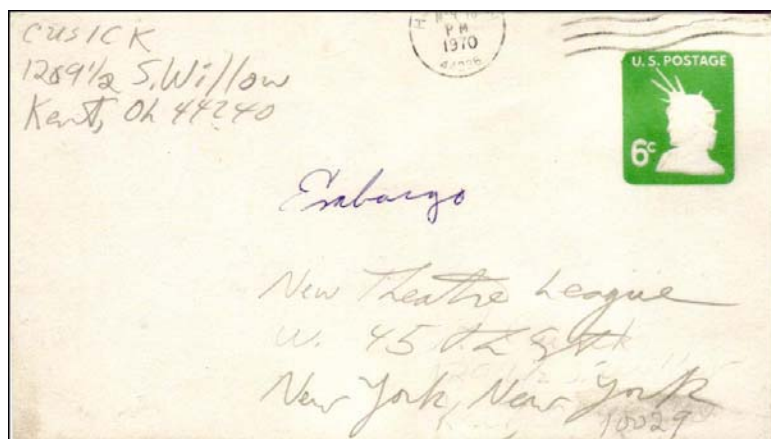 CUSICK
1289½ S. Willow
Kent, Oh 44240
P M
1970
U.S. POSTAGE
6c
Embargo
New Theatre League
W. 45th
New York, New York
10029